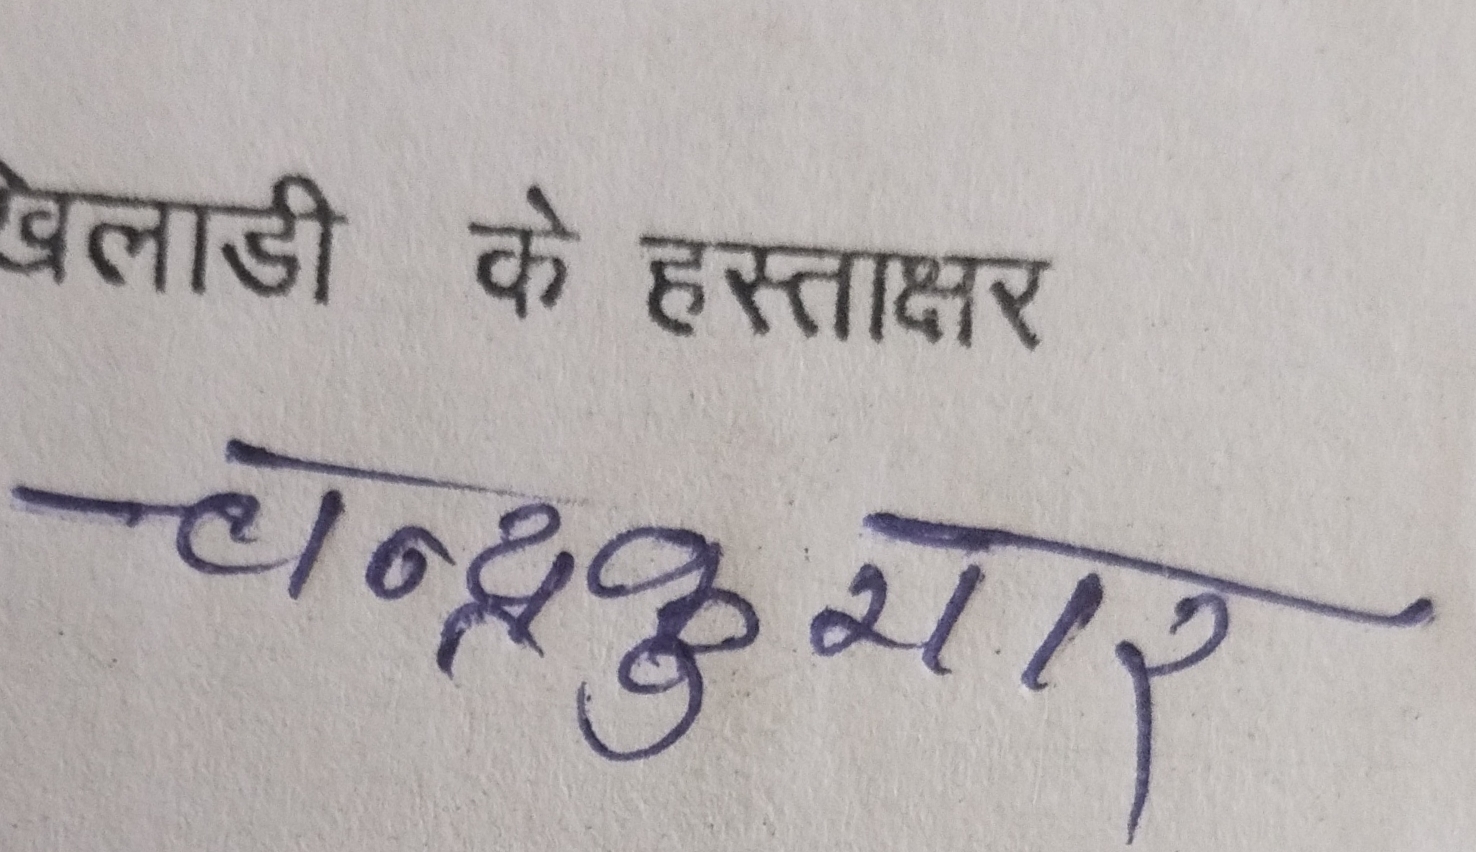 खिलाडी के हस्ताक्षर
चन्द्रकुमार